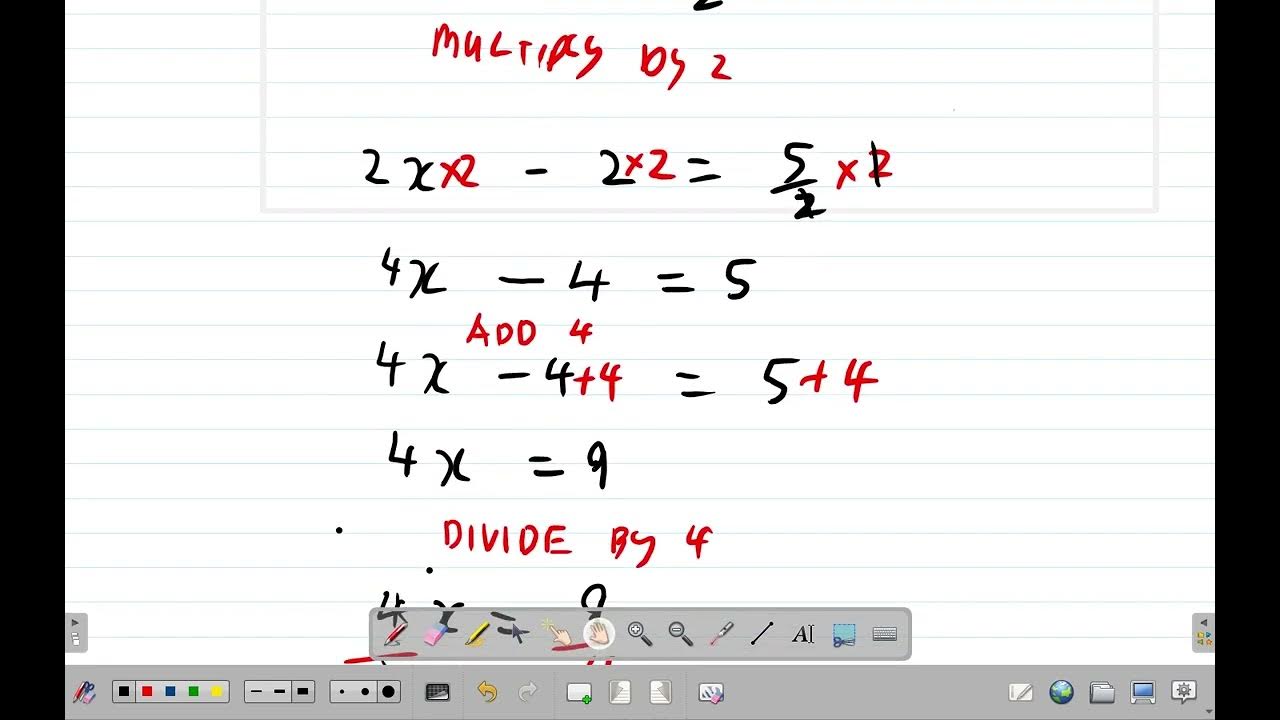 2
MULTIPLY by 2
2x×2 - 2×2 = 5/2 × 2
4x - 4 = 5
ADD 4
4x - 4+4 = 5+4
4x = 9
DIVIDE By 4
4x = 9